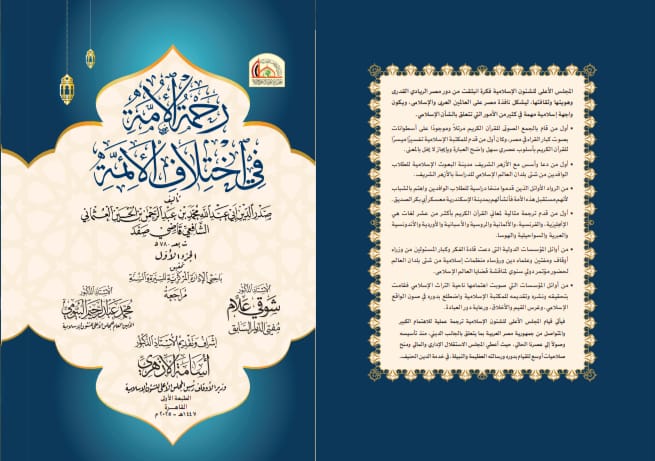 رحمة الأمة
في اختلاف الأئمة
تأليف
صدر الدين أبي عبد الله محمد بن عبد الرحمن بن الحسين العثماني
الشافعي قاضي صفد
ت بعد ٧٨٠هـ
الجزء الأول
تحقيق
باحثي الإدارة المركزية للسيرة والسنة
مراجعة
الأستاذ الدكتور
شوقي علام
مفتي الديار السابق
الأستاذ الدكتور
محمد عبد الرحيم البيومي
الأمين العام للمجلس الأعلى للشئون الإسلامية
إشراف وتقديم الأستاذ الدكتور
أسامة الأزهري
وزير الأوقاف رئيس المجلس الأعلى للشئون الإسلامية
الطبعة الأولى
القاهرة
١٤٤٧هـ - ٢٠٢٥م
المجلس الأعلى للشئون الإسلامية فكرة انبثقت من دور مصر الريادي القدرى
وهويتها وثقافتها، ليشكل نافذة مصر على العالمين العربى والإسلامى، ويكون
واجهة إسلامية مهمة في كثير من الأمور التي تتعلق بالشأن الإسلامي.
• أول من قام بالجمع الصوتي للقرآن الكريم مرتلاً وموجودًا على أسطوانات
بصوت كبار القراء في مصر، وكان أول من قدم للمكتبة الإسلامية تفسيرًا ميسرًا
للقرآن الكريم بأسلوب عصري سهل واضح العبارة وبإيجاز لا يخل بالمعنى.
• أول من دعا وأسس مع الأزهر الشريف مدينة البعوث الإسلامية للطلاب
الوافدين من شتى بلدان العالم الإسلامي للدراسة بالأزهر الشريف.
• من الرواد الأوائل الذين قدموا منحًا دراسية للطلاب الوافدين واهتم بالشباب
لأنهم مستقبل هذه الأمة فأنشأ لهم بمدينة الإسكندرية معسكر أبي بكر الصديق.
• أول من قدم ترجمة مثالية لمعاني القرآن الكريم بأكثر من عشر لغات هي
الإنجليزية، والفرنسية، والألمانية والروسية والأسبانية والأوردية والأندونيسية
والعبرية والسواحيلية والهوسا.
• من أوائل المؤسسات الدولية التي دعت قادة الفكر وكبار المسئولين من وزراء
أوقاف ومفتين وعلماء دين ورؤساء منظمات إسلامية من شتى بلدان العالم
لحضور مؤتمر دولي سنوي لمناقشة قضايا العالم الإسلامي.
• من أوائل المؤسسات التي صوبت اهتمامها ناحية التراث الإسلامي فقامت
بتحقيقه ونشره وتقديمه للمكتبة الإسلامية واضطلع بدوره في صون الواقع
الإسلامي، وغرس القيم والأخلاق، ورعاية دور العبادة.
فيأتي قيام المجلس الأعلى للشئون الإسلامية ترجمة عملية للاهتمام الكبير
والمتواصل من جمهورية مصر العربية بما يتعلق بالجانب الديني، منذ تأسيسه
وصولاً إلى عصرنا الحالي، حيث أعطي المجلس الاستقلال الإداري والمالي ومنح
صلاحيات أوسع للقيام بدوره ورسالته العظيمة والنبيلة، في خدمة الدين الحنيف.